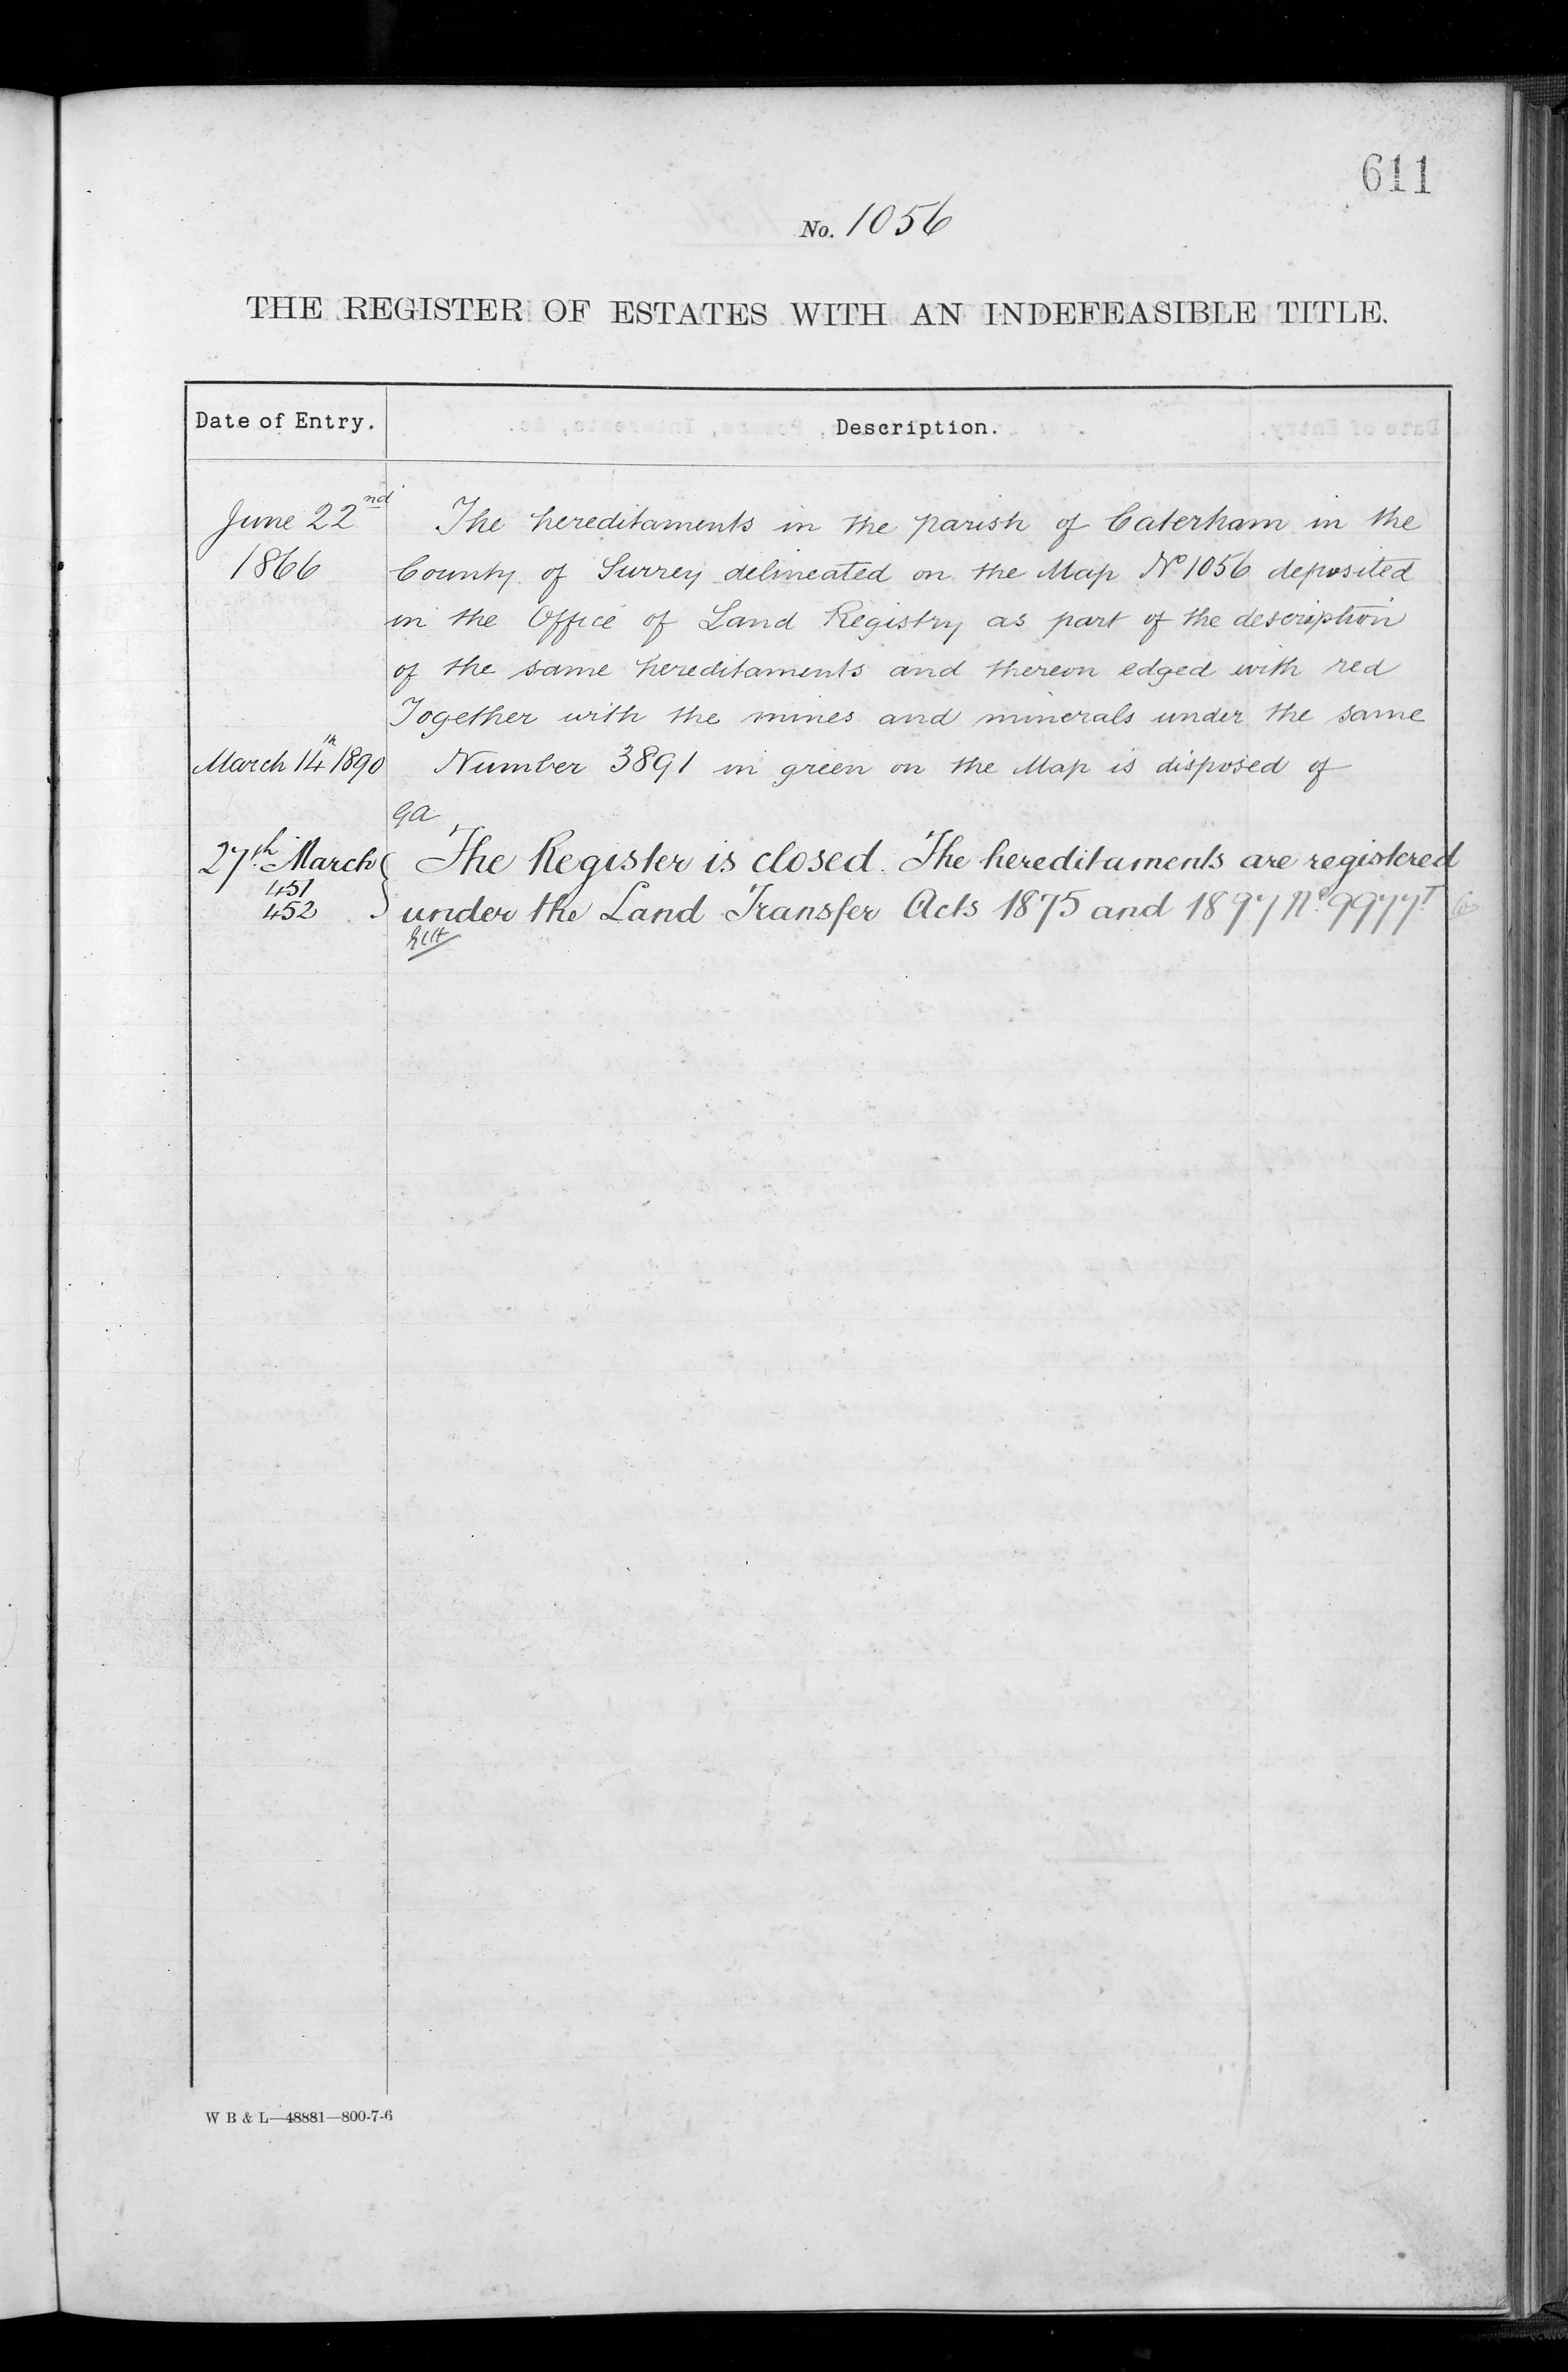 611
No. 1056
THE REGISTER OF ESTATES WITH AN INDEFEASIBLE TITLE.
Date of Entry. Description.
June 22nd The hereditaments in the parish of Caterham in the
1866 County of Surrey delineated on the Map No 1056 deposited
in the Office of Land Registry as part of the description
of the same hereditaments and thereon edged with red
Together with the mines and minerals under the same
March 14th 1890 Number 3891 in green on the Map is disposed of
GA
27th March The Register is closed. The hereditaments are registered
451
452 under the Land Transfer Acts 1875 and 1897 No. 9977T
W B & L—48881—800-7-6